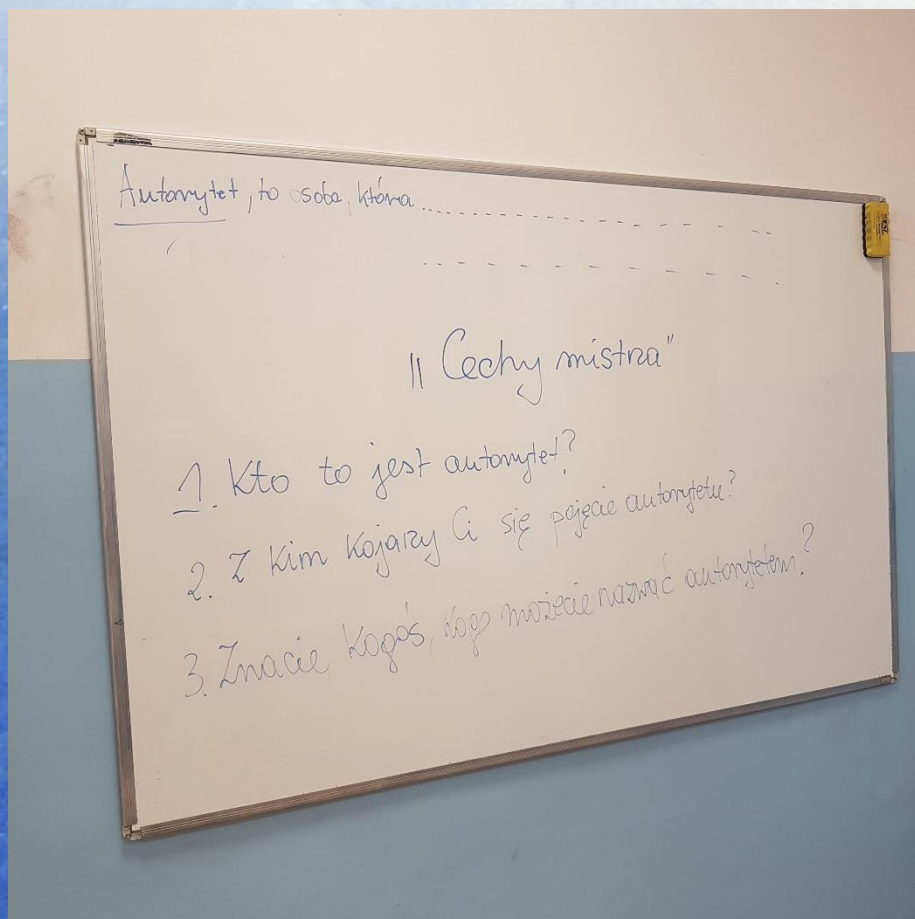 Autorytet, to osoba, która ..............................
..............................
"Cechy mistrza"
1. Kto to jest autorytet?
2. Z kim kojarzy Ci się pojęcie autorytetu?
3. Znacie kogoś, kogo możecie nazwać autorytetem?